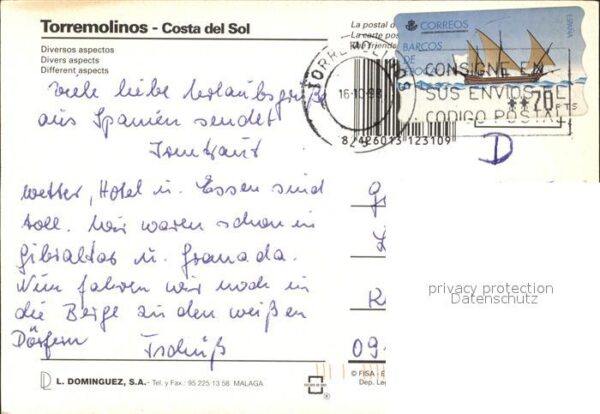 Torremolinos - Costa del Sol
Diversos aspectos
Divers aspects
Different aspects
La postal
La carte pos
The friend
viele liebe Urlaubsgrüße
aus Spanien sendet
Irmtraut
Wetter, Hotel u. Essen sind
toll. Wir waren schon in
Gibraltar u. Granada.
Nun fahren wir noch in
die Berge zu den weißen
Dörfern Tschüß
CORREOS
ESPAÑA
BARCOS
DE
TORREMOLINOS
16-10-98
CONSIGNE EN
SUS ENVIOS EL
CODIGO POSTAL
**70 PTS
8 426013 123109
D
09
privacy protection
Datenschutz
L. DOMINGUEZ, S.A. - Tel. y Fax.: 95 225 13 58 MALAGA
© FISA - E
Dep. Leg